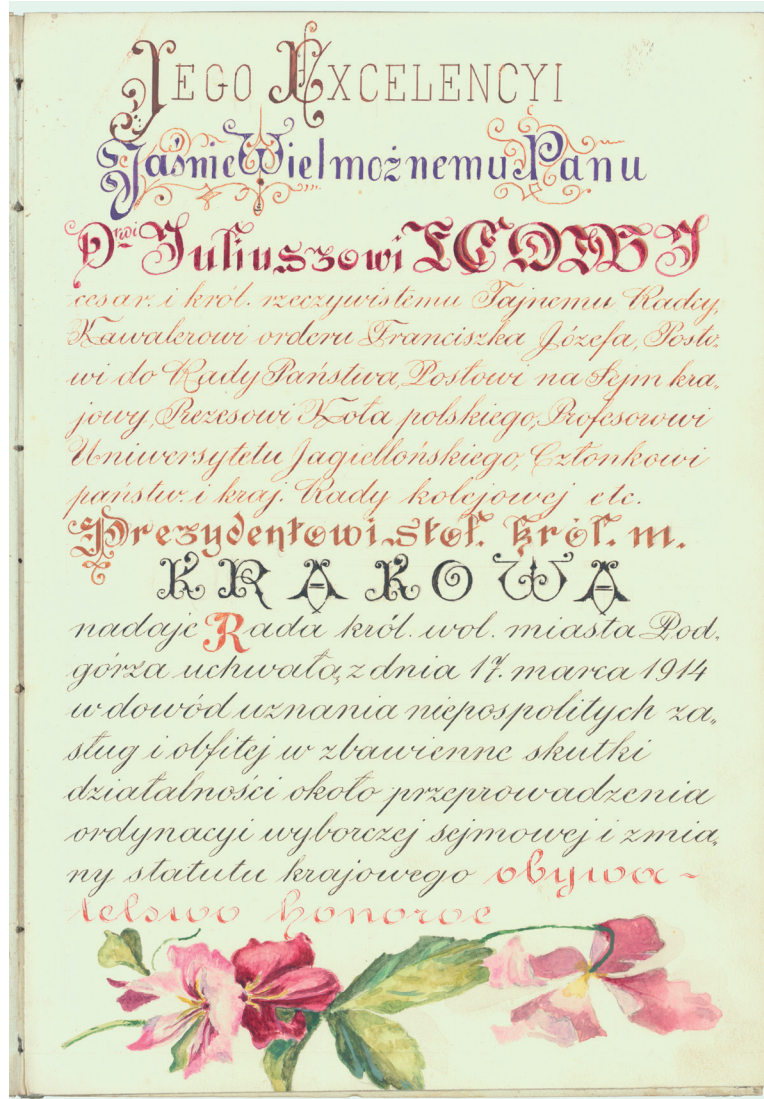 JEGO EXCELENCYI
Jaśnie Wielmożnemu Panu
Drowi Juliuszowi LEOWI
cesar. i król. rzeczywistemu Tajnemu Radcy,
Kawalerowi orderu Franciszka Józefa, Posło-
wi do Rady Państwa, Posłowi na Sejm kra-
jowy, Prezesowi Koła polskiego, Profesorowi
Uniwersytetu Jagiellońskiego, Członkowi
państw. i kraj. Rady kolejowej etc.
Prezydentowi stoł. król. m.
KRAKOWA
nadaje Rada król. wol. miasta Pod-
górza uchwałą z dnia 17. marca 1914
w dowód uznania niepospolitych za-
sług i obfitej w zbawienne skutki
działalności około przeprowadzenia
ordynacyi wyborczej sejmowej i zmia-
ny statutu krajowego obywa-
telswo honorowe